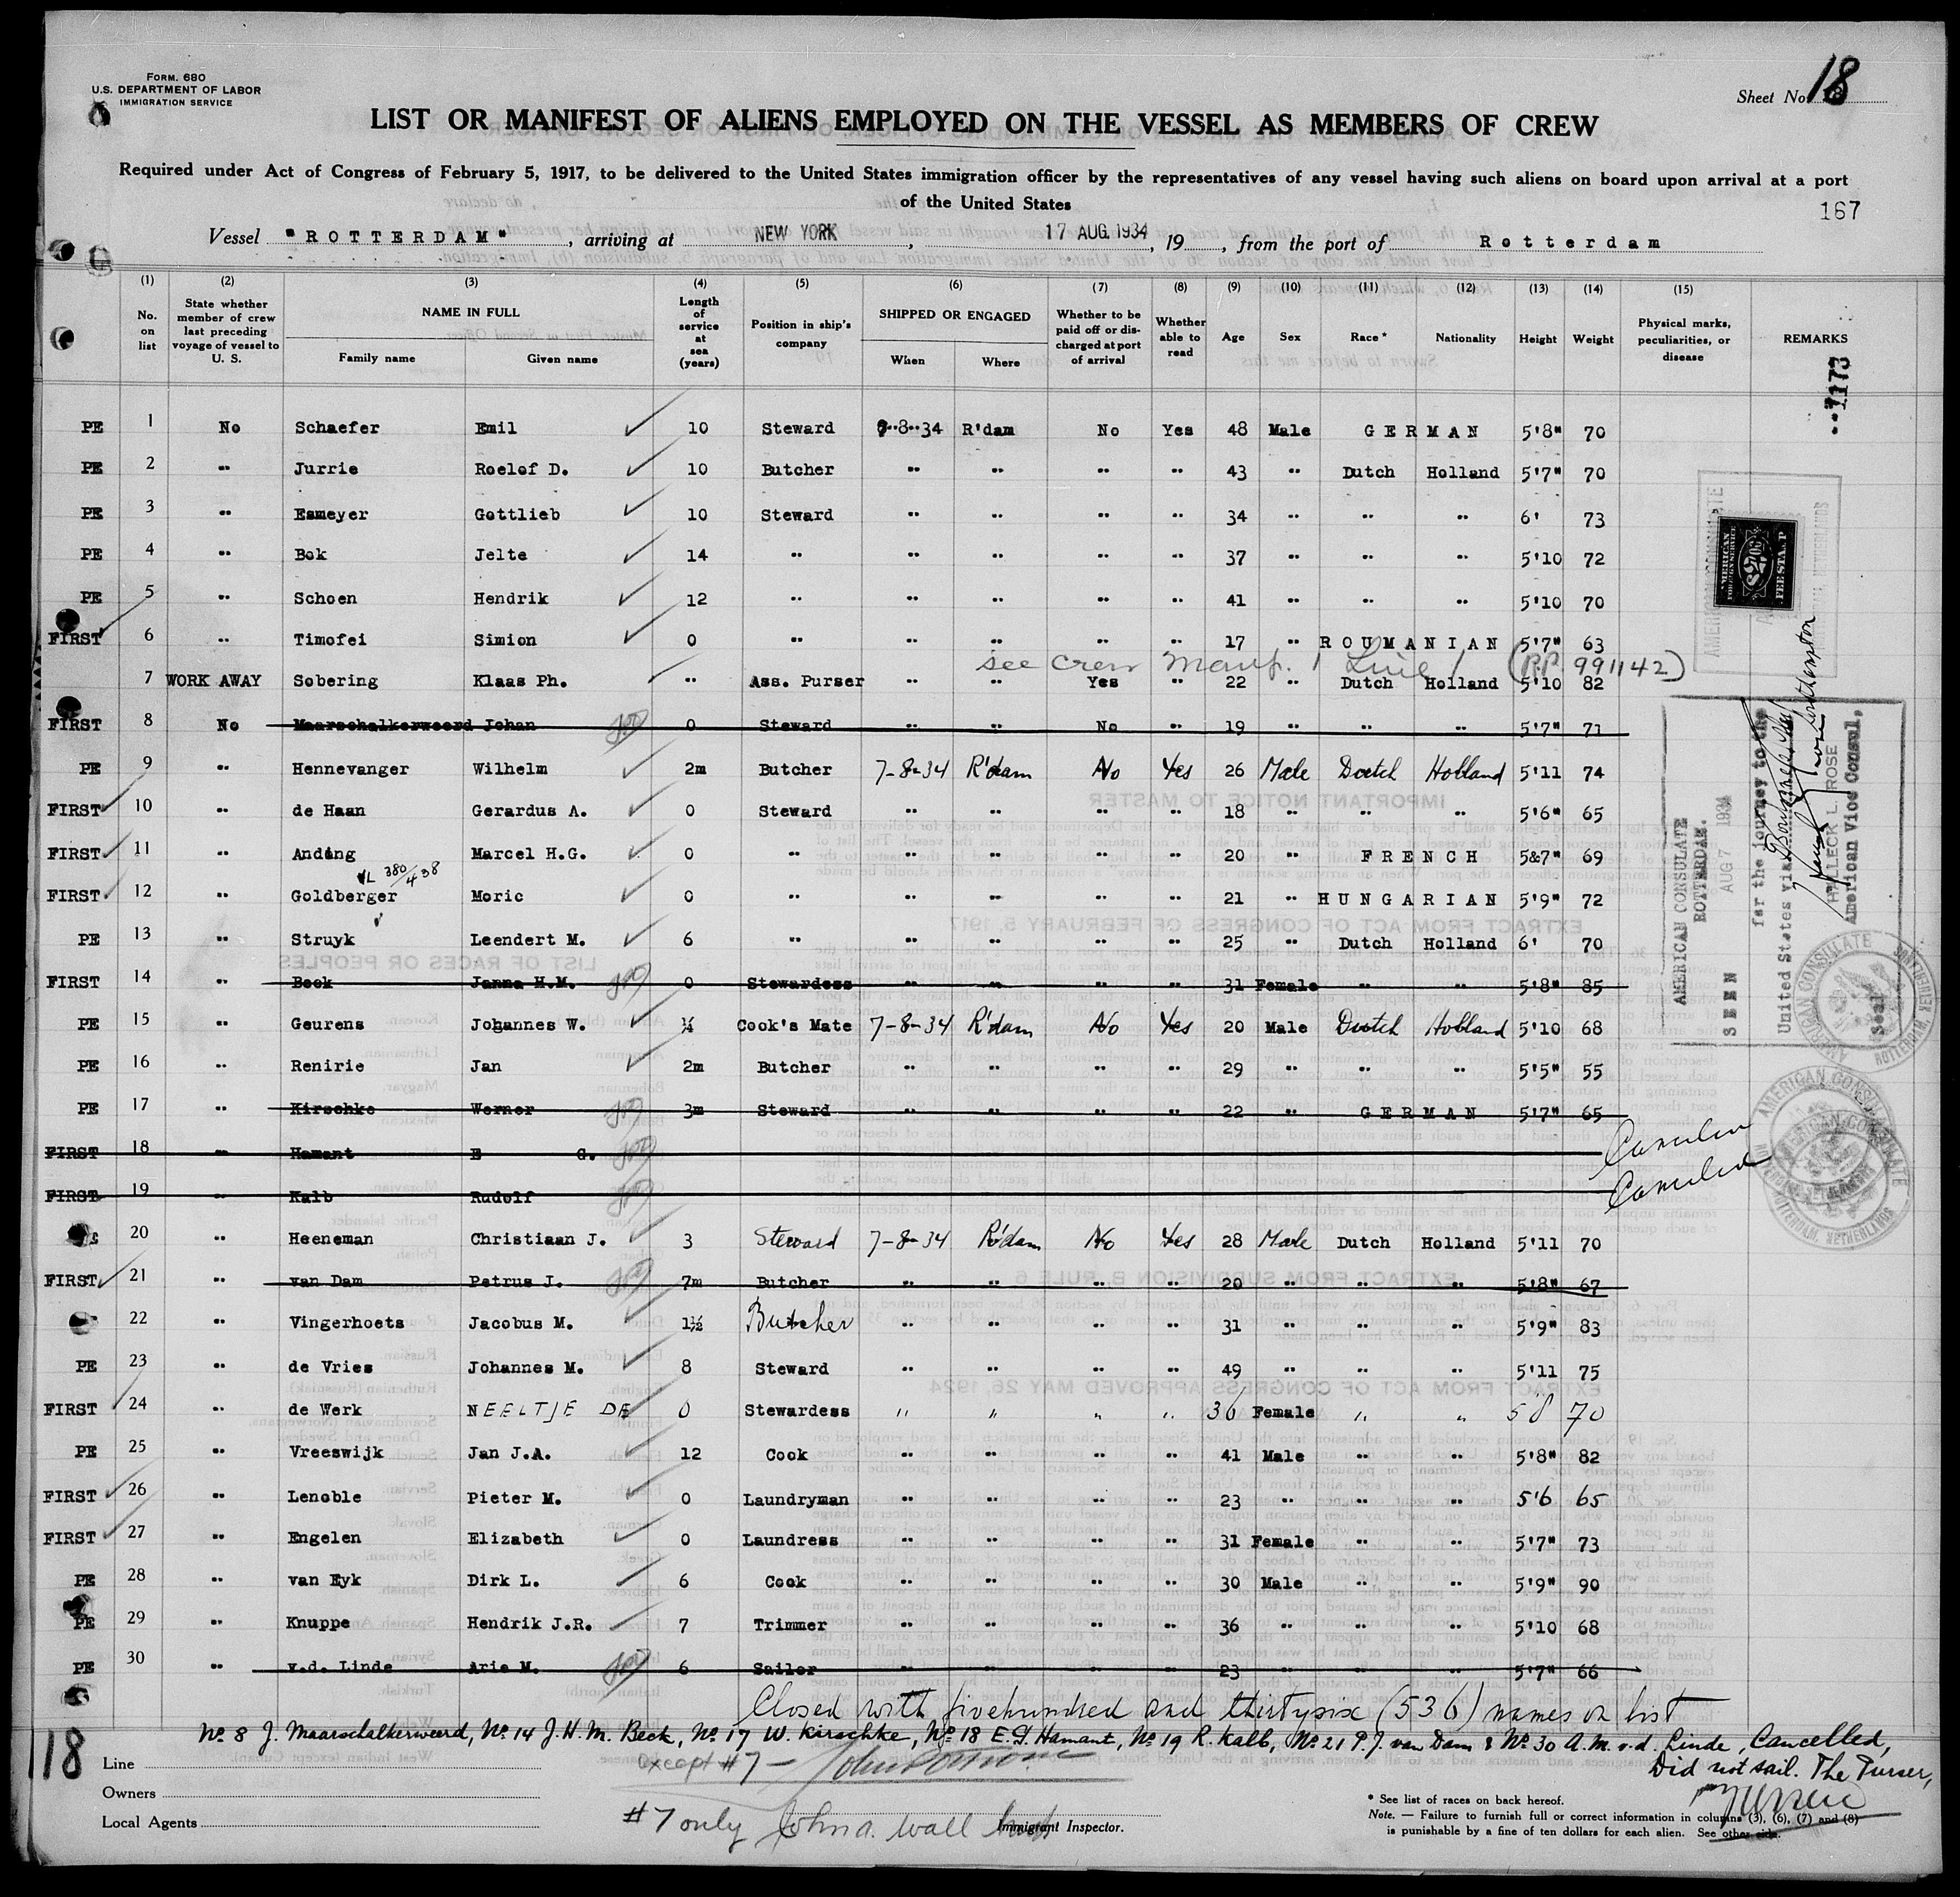 Form. 680
U.S. DEPARTMENT OF LABOR
IMMIGRATION SERVICE
Sheet No. 18
LIST OR MANIFEST OF ALIENS EMPLOYED ON THE VESSEL AS MEMBERS OF CREW
Required under Act of Congress of February 5, 1917, to be delivered to the United States immigration officer by the representatives of any vessel having such aliens on board upon arrival at a port
of the United States
167
Vessel "ROTTERDAM", arriving at NEW YORK, 17 AUG. 1934, 19, from the port of Rotterdam
(1) (2) (3) (4) (5) (6) (7) (8) (9) (10) (11) (12) (13) (14) (15)
No. on list
State whether member of crew last preceding voyage of vessel to U. S.
NAME IN FULL
Family name
Given name
Length of service at sea (years)
Position in ship's company
SHIPPED OR ENGAGED
When
Where
Whether to be paid off or discharged at port of arrival
Whether able to read
Age
Sex
Race *
Nationality
Height
Weight
Physical marks, peculiarities, or disease
REMARKS
1173
PE 1 No Schaefer Emil 10 Steward 7-8-34 R'dam No Yes 48 Male GERMAN 5'8" 70
PE 2 " Jurrie Roelof D. 10 Butcher " " " " 43 " Dutch Holland 5'7" 70
PE 3 " Esmeyer Gottlieb 10 Steward " " " " 34 " " " 6' 73
PE 4 " Bok Jelte 14 " " " " " 37 " " " 5'10 72
PE 5 " Schoen Hendrik 12 " " " " " 41 " " " 5'10 70
FIRST 6 " Timofei Simion 0 " " " " " 17 " ROUMANIAN 5'7" 63
see crew manif. 1 Line 1 (P.P. 991142)
7 WORK AWAY Sobering Klaas Ph. " Ass. Purser " " Yes " 22 " Dutch Holland 5'10 82
FIRST 8 No Maarschalkerweerd Johan 0 Steward " " No " 19 " " " 5'7" 71
PE 9 " Hennevanger Wilhelm 2m Butcher 7-8-34 R'dam No Yes 26 Male Dutch Holland 5'11 74
FIRST 10 " de Haan Gerardus A. 0 Steward " " " " 18 " " " 5'6" 65
FIRST 11 " Anding Marcel H.G. 0 " " " " " 20 " FRENCH 5&7" 69
VL 380/438
FIRST 12 " Goldberger Moric 0 " " " " " 21 " HUNGARIAN 5'9" 72
PE 13 " Struyk Leendert M. 6 " " " " " 25 " Dutch Holland 6' 70
FIRST 14 " Beek Janna H.M. 0 Stewardess " " " " 31 Female " " 5'8" 85
PE 15 " Geurens Johannes W. ¼ Cook's Mate 7-8-34 R'dam No Yes 20 Male Dutch Holland 5'10 68
PE 16 " Renirie Jan 2m Butcher " " " " 29 " " " 5'5" 55
PE 17 " Kirschke Werner 3m Steward " " " " 22 " GERMAN 5'7" 65
FIRST 18 " Hamant E G.
FIRST 19 " Kalb Rudolf
20 " Heeneman Christiaan J. 3 Steward 7-8-34 R'dam No Yes 28 Male Dutch Holland 5'11 70
FIRST 21 " van Dam Petrus J. 7m Butcher " " " " 20 " " " 5'8" 67
22 " Vingerhoets Jacobus M. 1½ Butcher " " " " 31 " " " 5'9" 83
PE 23 " de Vries Johannes M. 8 Steward " " " " 49 " " " 5'11 75
FIRST 24 " de Werk NEELTJE DE 0 Stewardess " " " " 36 Female " " 5'8" 70
PE 25 " Vreeswijk Jan J.A. 12 Cook " " " " 41 Male " " 5'8" 82
FIRST 26 " Lenoble Pieter M. 0 Laundryman " " " " 23 " " " 5'6 65
FIRST 27 " Engelen Elizabeth 0 Laundress " " " " 31 Female " " 5'7" 73
PE 28 " van Eyk Dirk L. 6 Cook " " " " 30 Male " " 5'9" 90
PE 29 " Knuppe Hendrik J.R. 7 Trimmer " " " " 36 " " " 5'10 68
PE 30 " v.d. Linde Arie M. 6 Sailor " " " " 23 " " " 5'7" 66
AMERICAN CONSULATE
ROTTERDAM.
AUG 7 1934
SEEN
for the journey to the
United States via
Southampton
HALLECK L. ROSE
American Vice Consul,
Closed with fivehundred and thirtysix (536) names on list
No. 8 J. Maarschalkerweerd, No. 14 J.H.M. Beek, No. 17 W. Kirschke, No. 18 E.G. Hamant, No. 19 R. Kalb, No. 21 P.J. van Dam & No. 30 A.M. v.d. Linde, Cancelled,
Did not sail. The Purser,
118
except #7 –
#7 only John A. Wall
Line
Owners
Local Agents
Immigrant Inspector.
* See list of races on back hereof.
Note. — Failure to furnish full or correct information in columns (3), (6), (7) and (8)
is punishable by a fine of ten dollars for each alien. See other side.